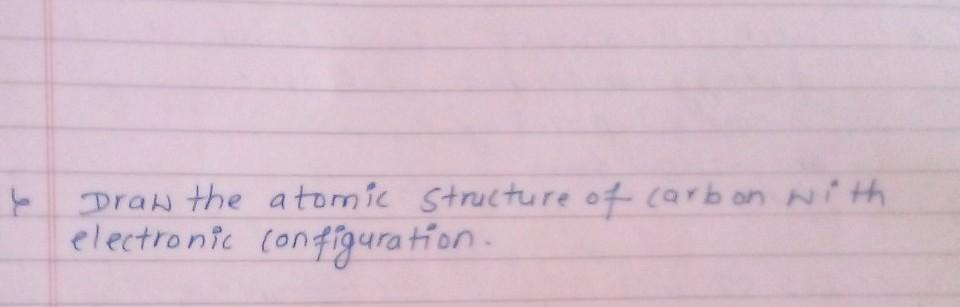 Draw the atomic structure of carbon with
electronic configuration.